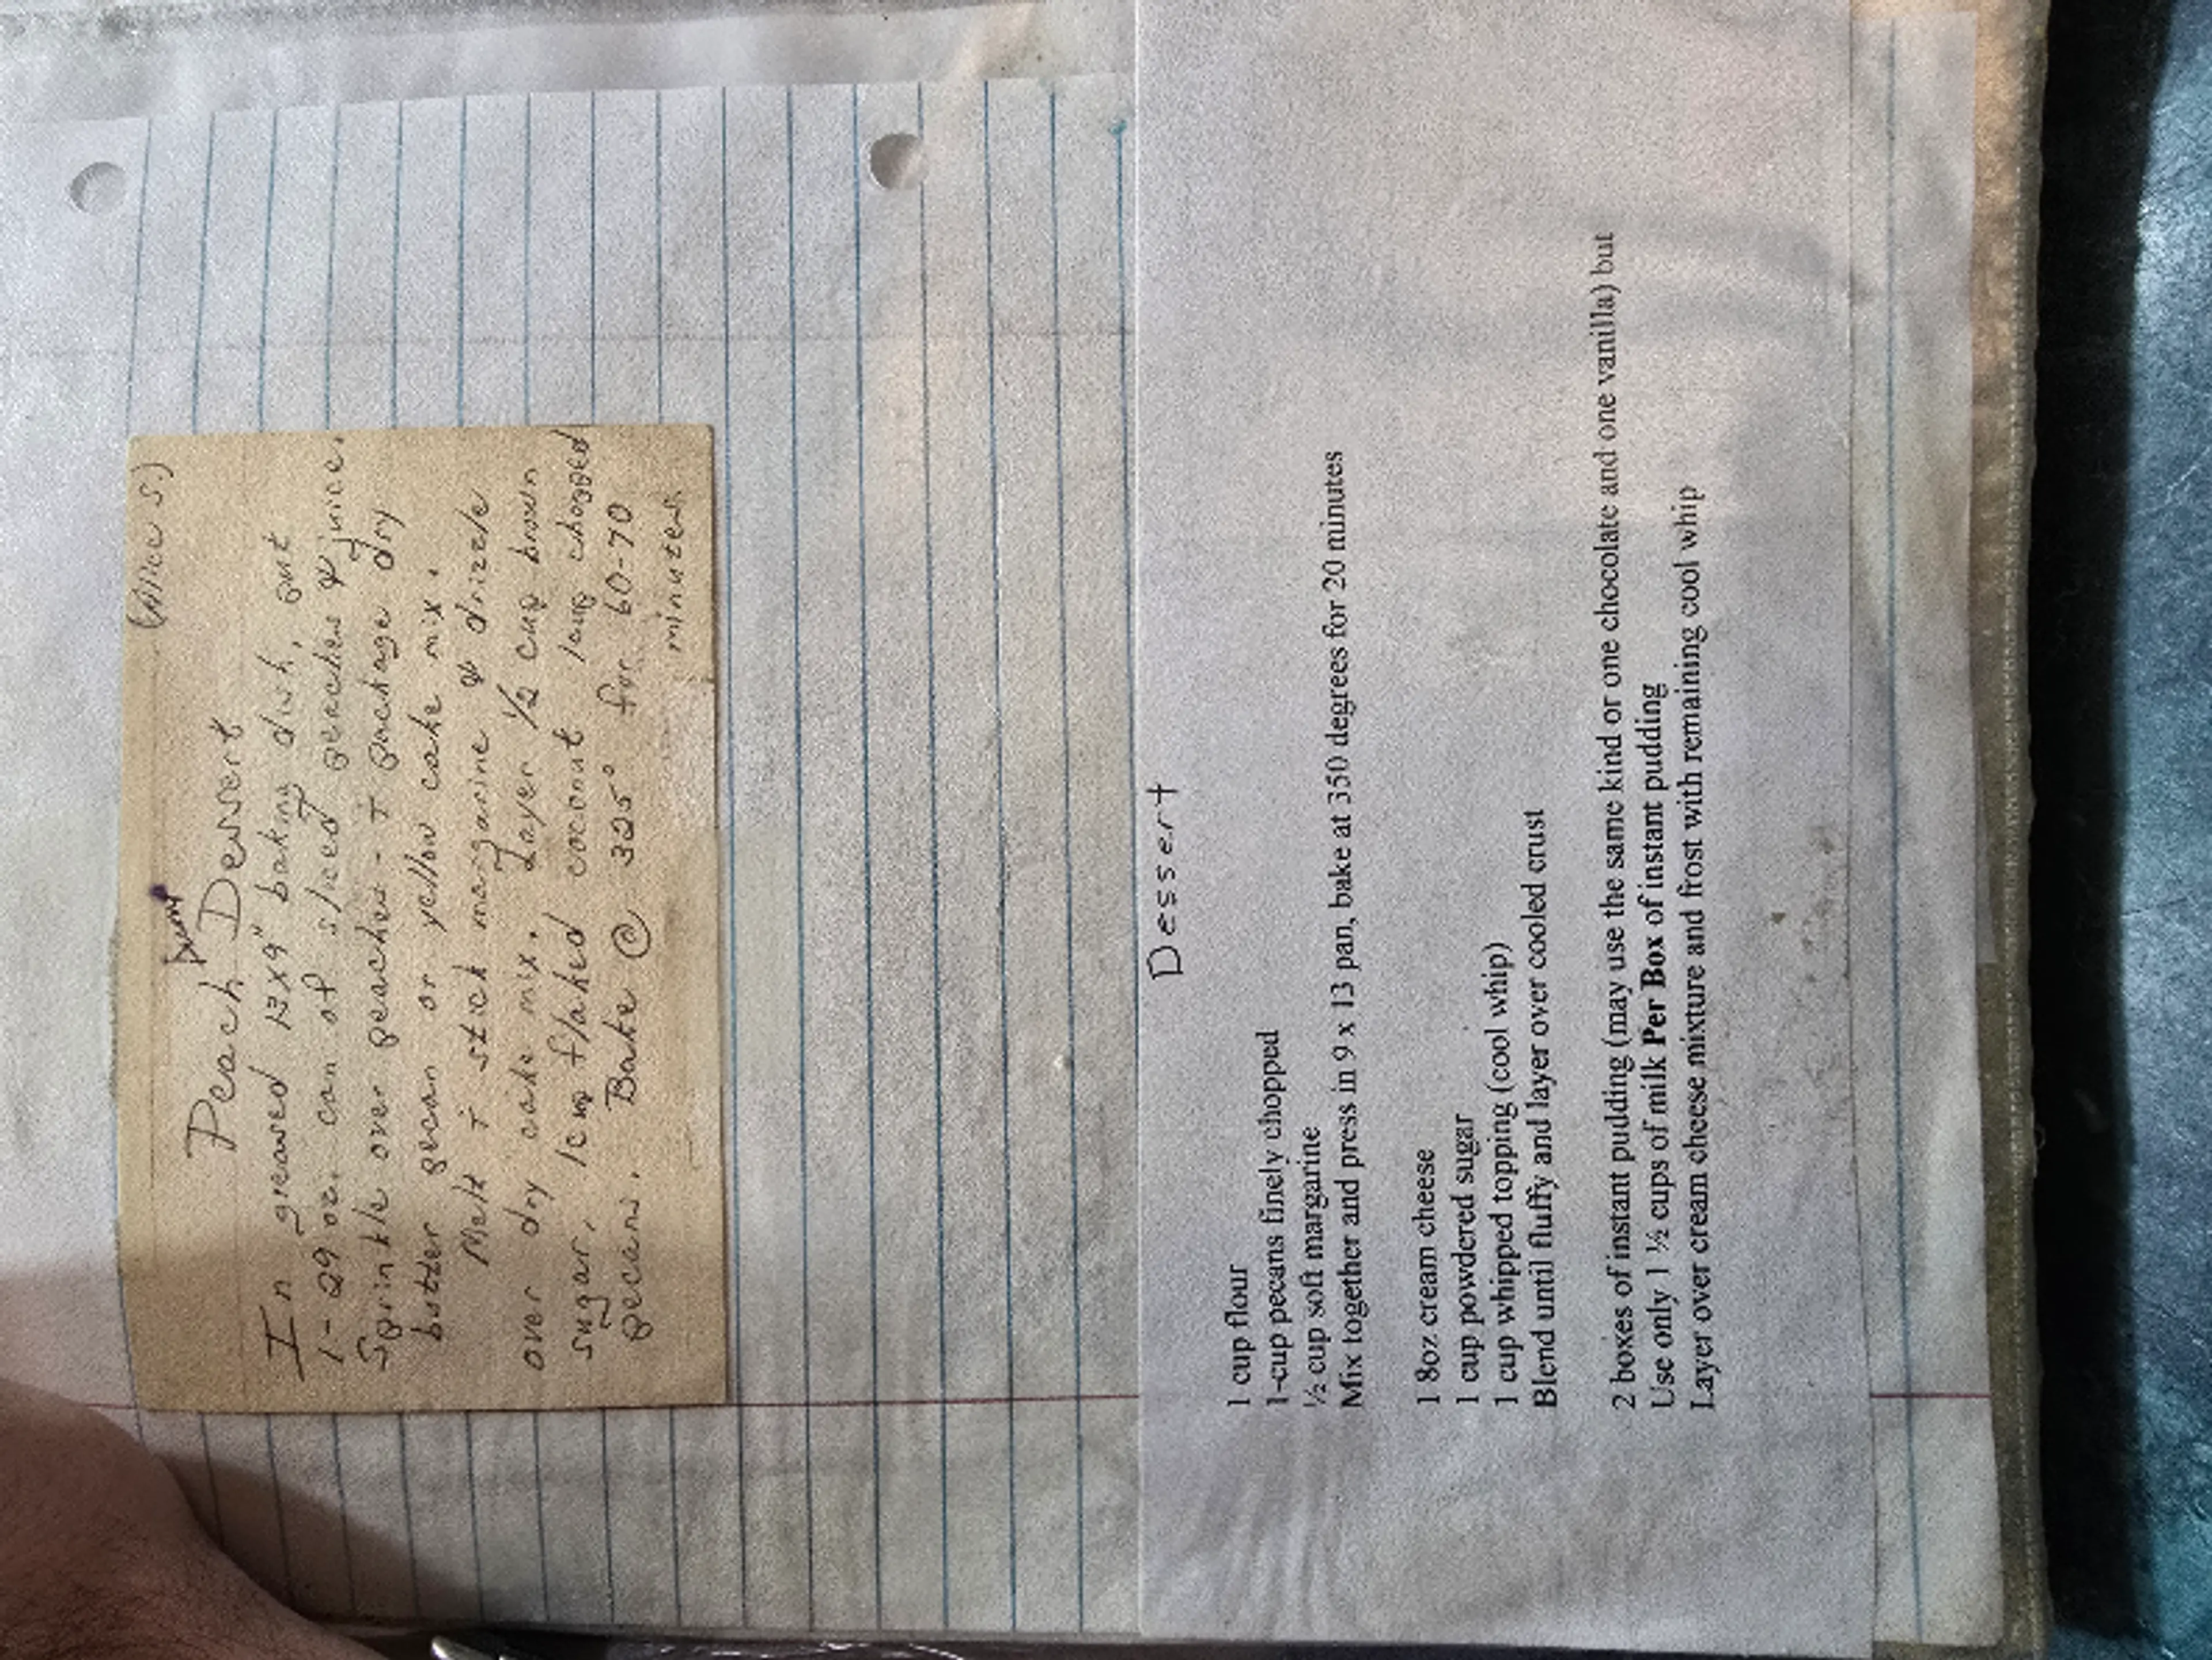 (Alice S)
Dump
Peach Dessert
In greased 13x9" baking dish, put
1-29 oz. can of sliced peaches & juice.
Sprinkle over peaches - 1 package dry
butter pecan or yellow cake mix.
Melt 1 stick margarine & drizzle
over dry cake mix. Layer 1/2 cup brown
sugar, 1 cup flaked coconut 1 cup chopped
pecans. Bake @ 325° for 60-70
minutes
Dessert
1 cup flour
1-cup pecans finely chopped
½ cup soft margarine
Mix together and press in 9 x 13 pan, bake at 350 degrees for 20 minutes
1 8oz cream cheese
1 cup powdered sugar
1 cup whipped topping (cool whip)
Blend until fluffy and layer over cooled crust
2 boxes of instant pudding (may use the same kind or one chocolate and one vanilla) but
Use only 1 ½ cups of milk Per Box of instant pudding
Layer over cream cheese mixture and frost with remaining cool whip